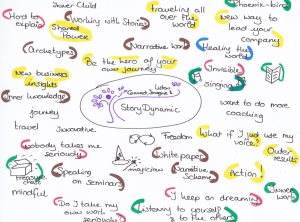 Inner Child
traveling all
over the
world
Phoenix-bird
Hard to
explain
Shared
Power
Working with Stories
New way to
lead your
company
Archetypes
Narrative work
Healing the
world
Be the hero of your
own journey
New business
insights
Invisible
Listen
Connect Imagine &
Singing
Inner knowledge
StoryDynamic
want to do more
coaching
journey
travel
Innovative
Freedom
What if I just use my
voice?
Nobody takes me
seriously
Outer
results
magician
White paper
treasure
chest
Speaking
on seminars
Narrative
Scheme
Action!
mindful
Inner work
Do I take my
own work
seriously
I keep on dreaming
Listening to yourself
& to the others